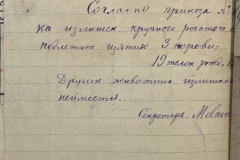 Согласно приказа №
ка излишек крупного рогатого
подлежит изятию 3 коровы.
19 телок рожд.
Других животных излишков
неимеется.
Секретарь.